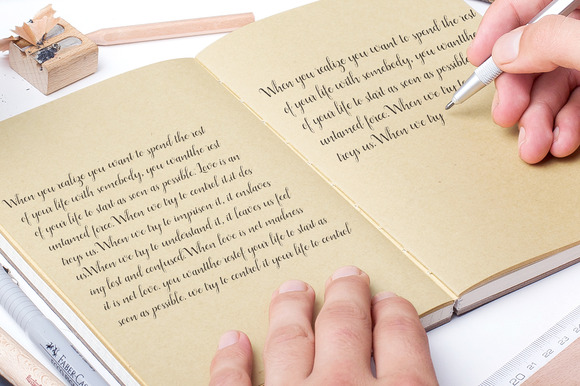 When you realize you want to spend the rest
of your life with somebody, you wantthe rest
of your life to start as soon as possible. Love is an
untamed force. When we try to control it,it des
troys us.When we try to imprison it, it enslaves
us.When we try to understand it, it leaves us feel
ing lost and confused.When love is not madness
it is not love. you wantthe restof your life to start as
soon as possible. we try to control it your life to control
When you realize you want to spend the rest
of your life with somebody, you wantthe
of your life to start as soon as possible
untamed force. When we try
troys us.When we try
FABER-CASTELL
20
21
22
23